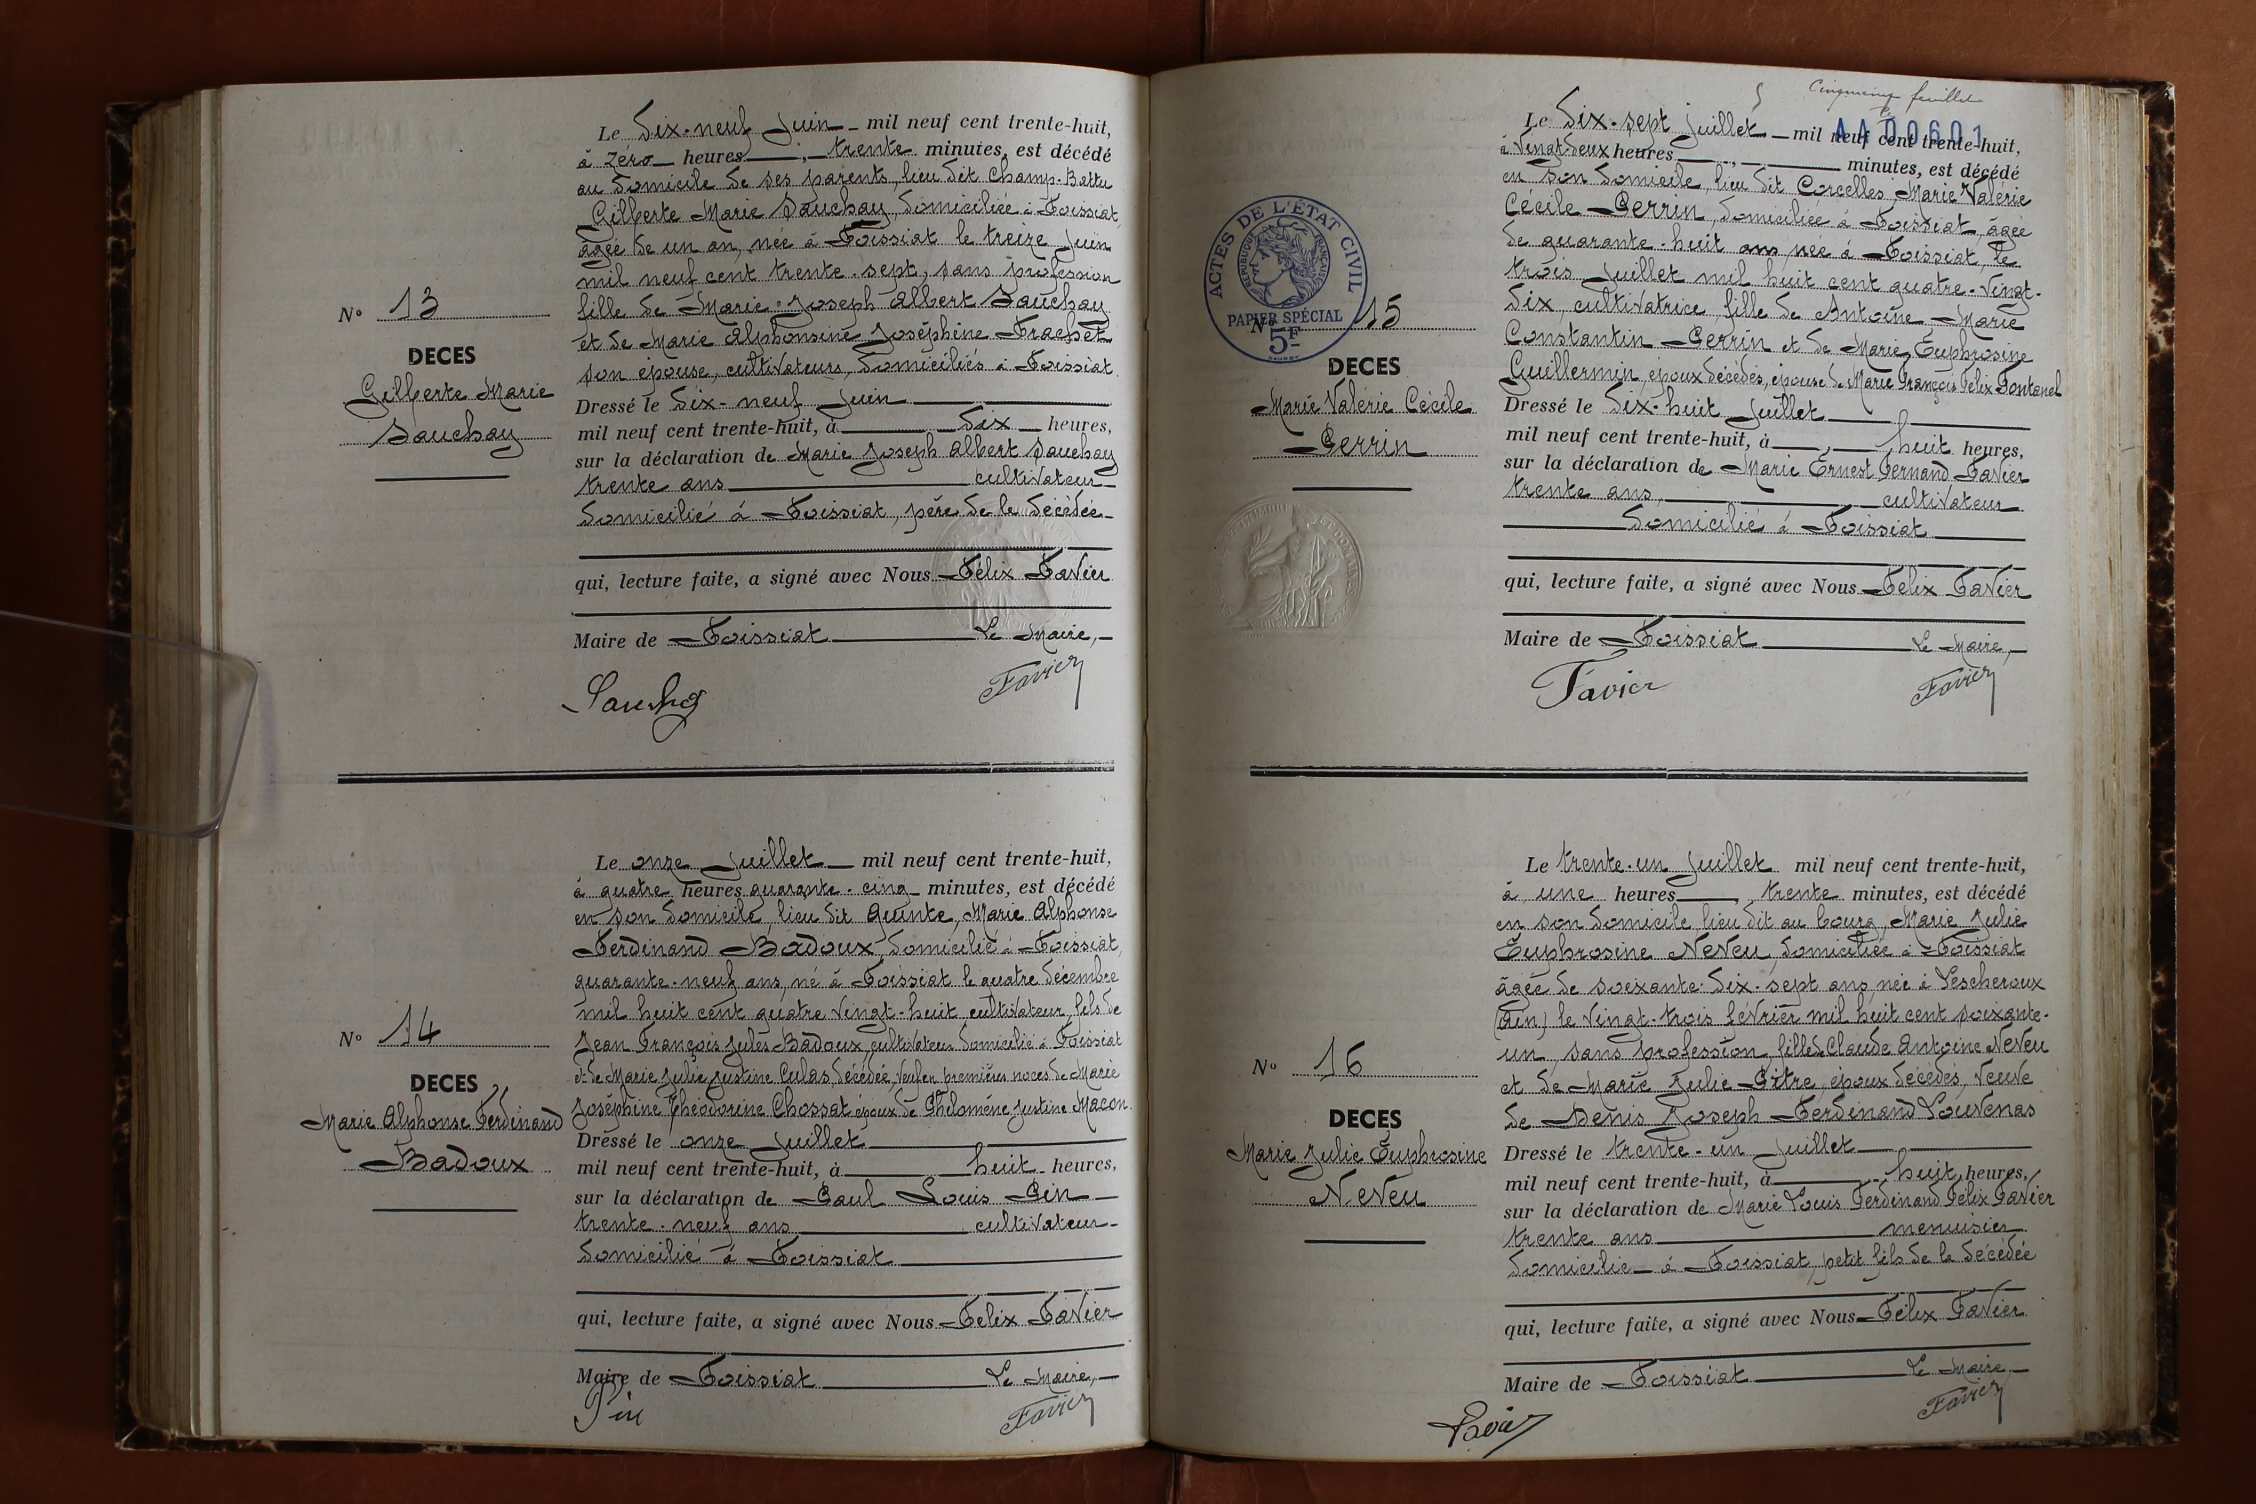 Le dix-neuf Juin mil neuf cent trente-huit,
à zéro heures, trente minutes, est décédé
au domicile de ses parents, lieu dit Champ-Battu
Gilberte Marie Sauchay, domiciliée à Foissiat,
âgée de un an, née à Foissiat le treize Juin
mil neuf cent trente-sept, sans profession
fille de Marie Joseph Albert Sauchay
et de Marie Alphonsine Joséphine Frachet
son épouse, cultivateurs, domiciliés à Foissiat.
Dressé le dix-neuf Juin
mil neuf cent trente-huit, à dix heures,
sur la déclaration de Marie Joseph Albert Sauchay
trente ans cultivateur
domicilié à Foissiat, père de la décédée
qui, lecture faite, a signé avec Nous Félix Favier
Maire de Foissiat Le Maire,
Favier
N° 13
DECES
Gilberte Marie
Sauchay
Le onze Juillet mil neuf cent trente-huit,
à quatre heures quarante-cinq minutes, est décédé
en son domicile, lieu dit Quinte, Marie Alphonse
Ferdinand Badoux, domicilié à Foissiat,
quarante-neuf ans, né à Foissiat le quatre décembre
mil huit cent quatre vingt-huit cultivateur, fils de
Jean François Jules Badoux, cultivateur domicilié à Foissiat
et de Marie Julie Justine Culas, décédée, veuf en premières noces de Marie
Joséphine Théodorine Chossat époux de Philomène Justine Macon.
Dressé le onze Juillet
mil neuf cent trente-huit, à huit heures,
sur la déclaration de Paul Louis Pin
trente-neuf ans cultivateur
domicilié à Foissiat
qui, lecture faite, a signé avec Nous Félix Favier
Maire de Foissiat Le Maire,
Pin Favier
N° 14
DECES
Marie Alphonse Ferdinand
Badoux
Cinquième feuillet
AA00601
Le dix-sept Juillet mil neuf cent trente-huit,
à vingt-deux heures, minutes, est décédé
en son domicile, lieu dit Corcelles, Marie Valérie
Cécile Perrin, domiciliée à Foissiat, âgée
de quarante-huit ans, née à Foissiat, le
trois Juillet mil huit cent quatre-vingt-
dix, cultivatrice, fille de Antoine Marie
Constantin Perrin et de Marie Euphrosine
Guillermin, époux décédés, épouse de Marie François Félix Fontanel
Dressé le dix-huit Juillet
mil neuf cent trente-huit, à huit heures,
sur la déclaration de Marie Ernest Fernand Favier
trente ans, cultivateur
domicilié à Foissiat
qui, lecture faite, a signé avec Nous Félix Favier
Maire de Foissiat Le Maire,
Favier Favier
ACTES DE L'ÉTAT CIVIL
RÉPUBLIQUE FRANÇAISE
PAPIER SPÉCIAL
5F
N° 15
DECES
Marie Valérie Cécile
Perrin
Le trente-un Juillet mil neuf cent trente-huit,
à une heures, trente minutes, est décédé
en son domicile, lieu dit au bourg, Marie Julie
Euphrosine Neveu, domiciliée à Foissiat
âgée de soixante-dix-sept ans, née à Lescheroux
(Ain) le vingt-trois février mil huit cent soixante-
un, sans profession, fille de Claude Antoine Neveu
et de Marie Julie Pitre, époux décédés, veuve
de Denis Joseph Ferdinand Louvenas
Dressé le trente-un Juillet
mil neuf cent trente-huit, à huit heures,
sur la déclaration de Marie Louis Ferdinand Félix Favier
trente ans menuisier
domicilié à Foissiat, petit fils de la décédée
qui, lecture faite, a signé avec Nous Félix Favier
Maire de Foissiat Le Maire
Favier Favier
N° 16
DECES
Marie Julie Euphrosine
Neveu